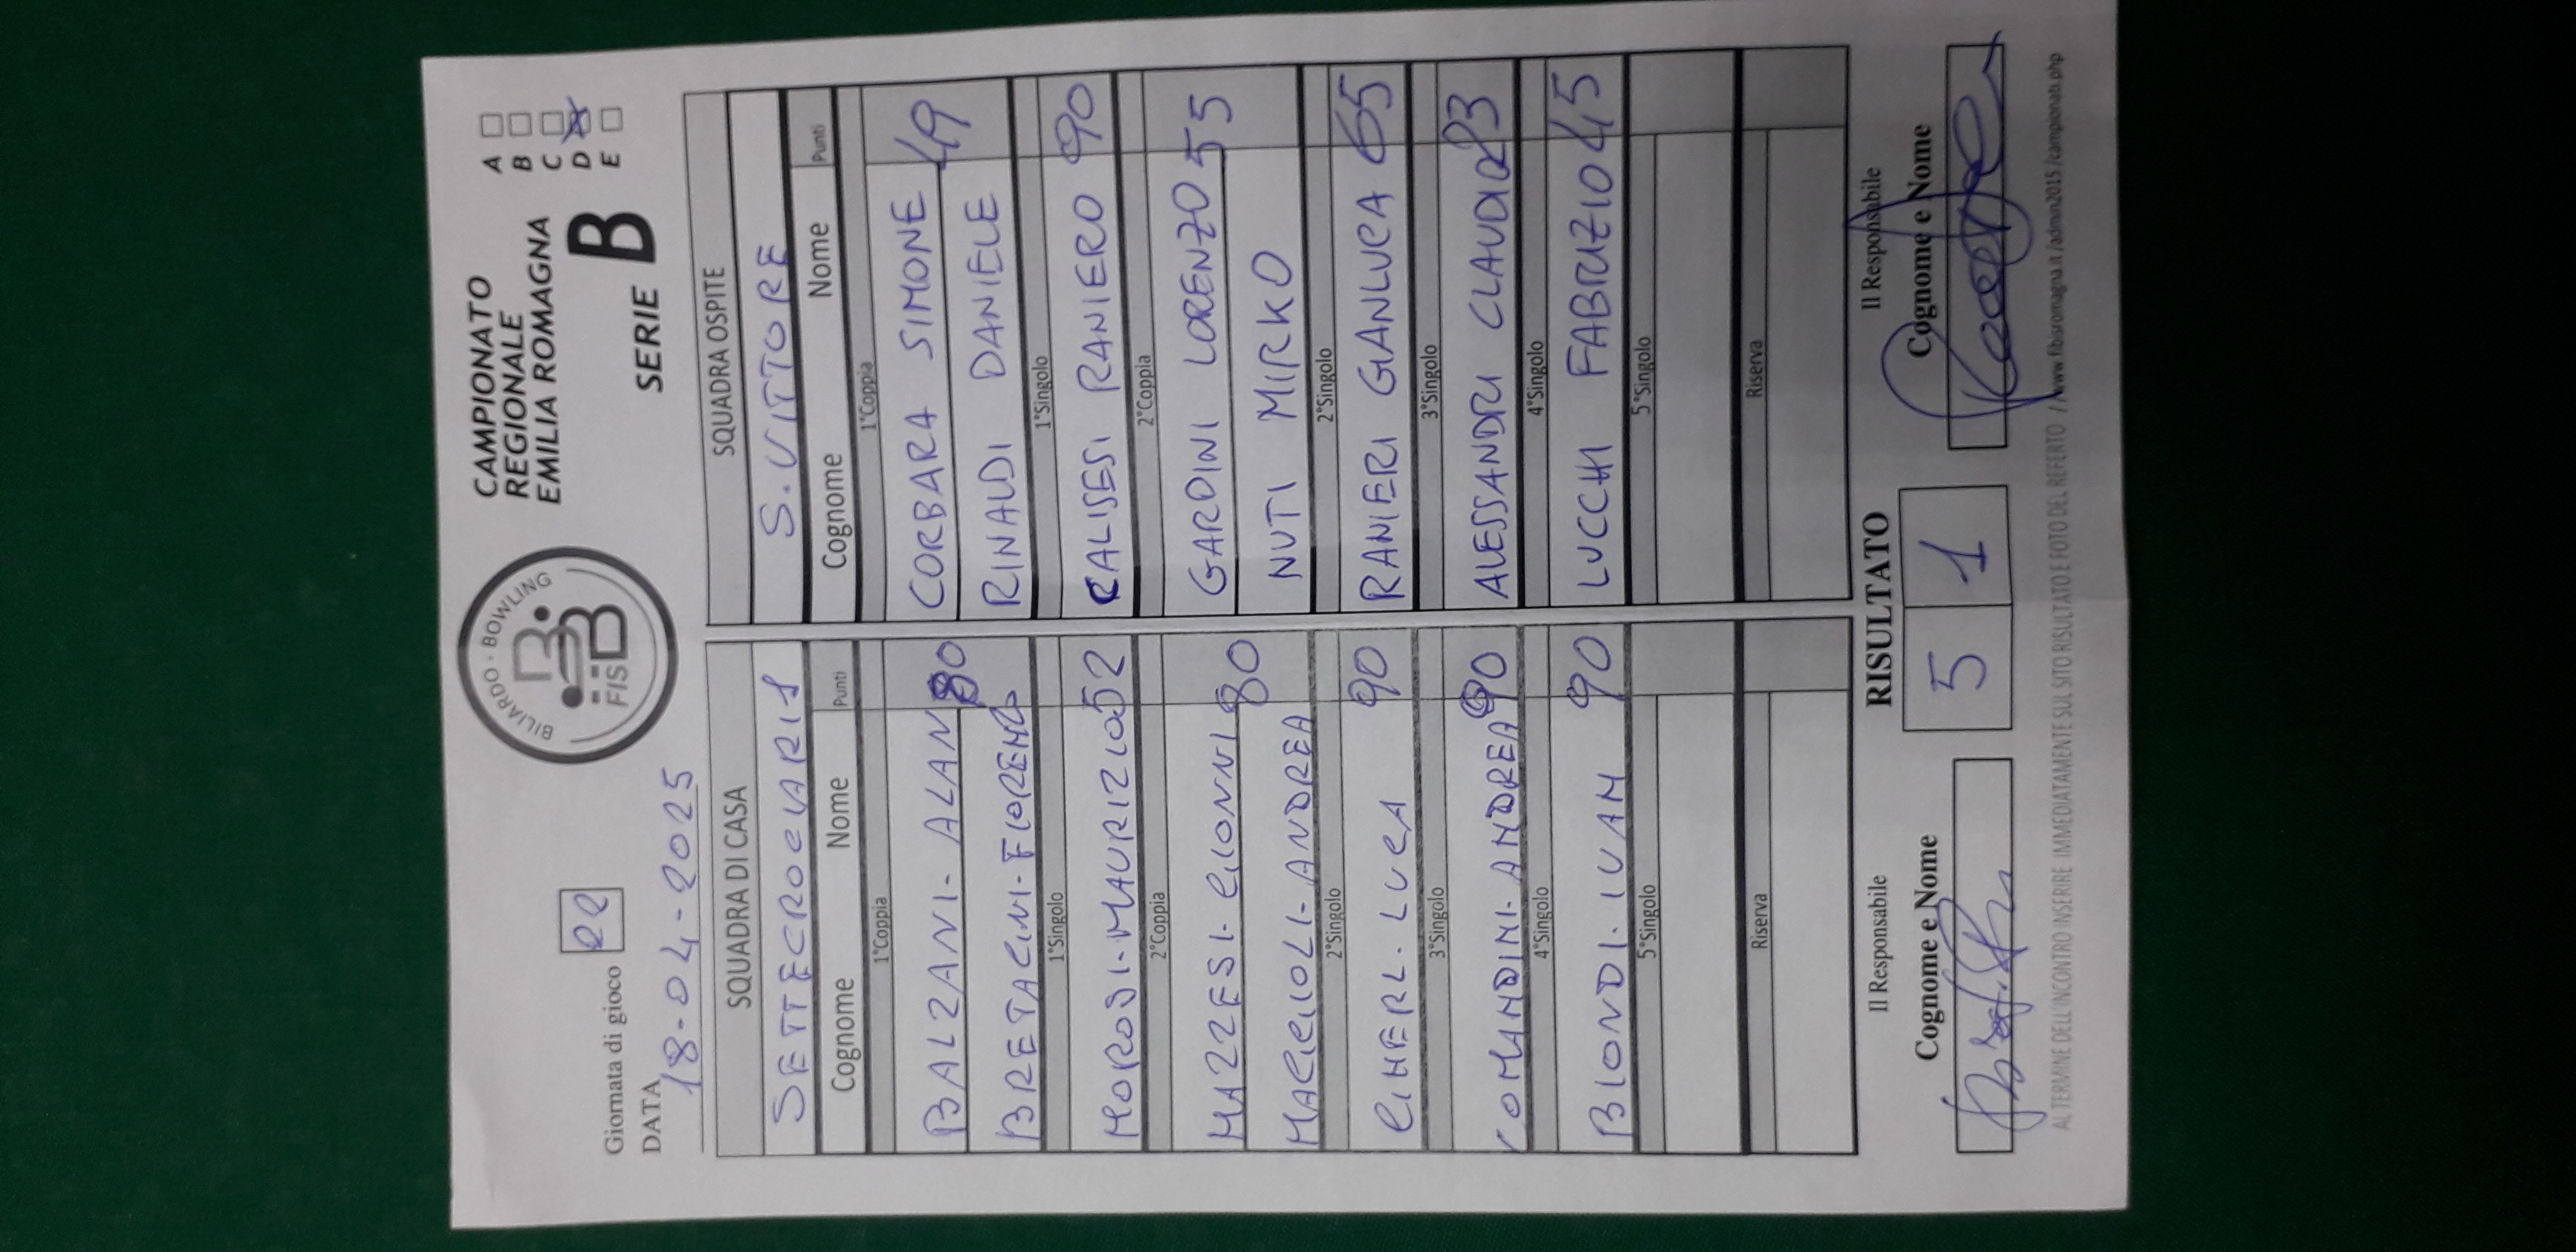 Giornata di gioco 22
DATA
18-04-2025
BILIARDO - BOWLING
FISBB
CAMPIONATO
REGIONALE
EMILIA ROMAGNA
SERIE B
A
B
C
D
E
SQUADRA DI CASA
SETTECROCIARIS
Cognome Nome Punti
1°Coppia
BALZANI - ALAN 80
BRETACINI - FIORENZO
1°Singolo
MOROSI - MAURIZIO 52
2°Coppia
MAZZESI - GIONNI 80
MACCIOLI - ANDREA
2°Singolo
LUCA 90
3°Singolo
COMANDINI - ANDREA 90
4°Singolo
BIONDI - IVAN 90
5°Singolo
Riserva
SQUADRA OSPITE
S. VITTORE
Cognome Nome Punti
1°Coppia
CORBARA SIMONE 49
RINALDI DANIELE
1°Singolo
CALISESI RANIERO 90
2°Coppia
GARDINI LORENZO 55
NUTI MIRKO
2°Singolo
RANIERI GIANLUCA 65
3°Singolo
ALESSANDRI CLAUDIO 83
4°Singolo
LUCCHI FABRIZIO 45
5°Singolo
Riserva
Il Responsabile
Cognome e Nome
RISULTATO
5 1
Il Responsabile
Cognome e Nome
AL TERMINE DELL'INCONTRO INSERIRE IMMEDIATAMENTE SUL SITO RISULTATO E FOTO DEL REFERTO / www.fibisromagna.it/admin2015/campionati.php